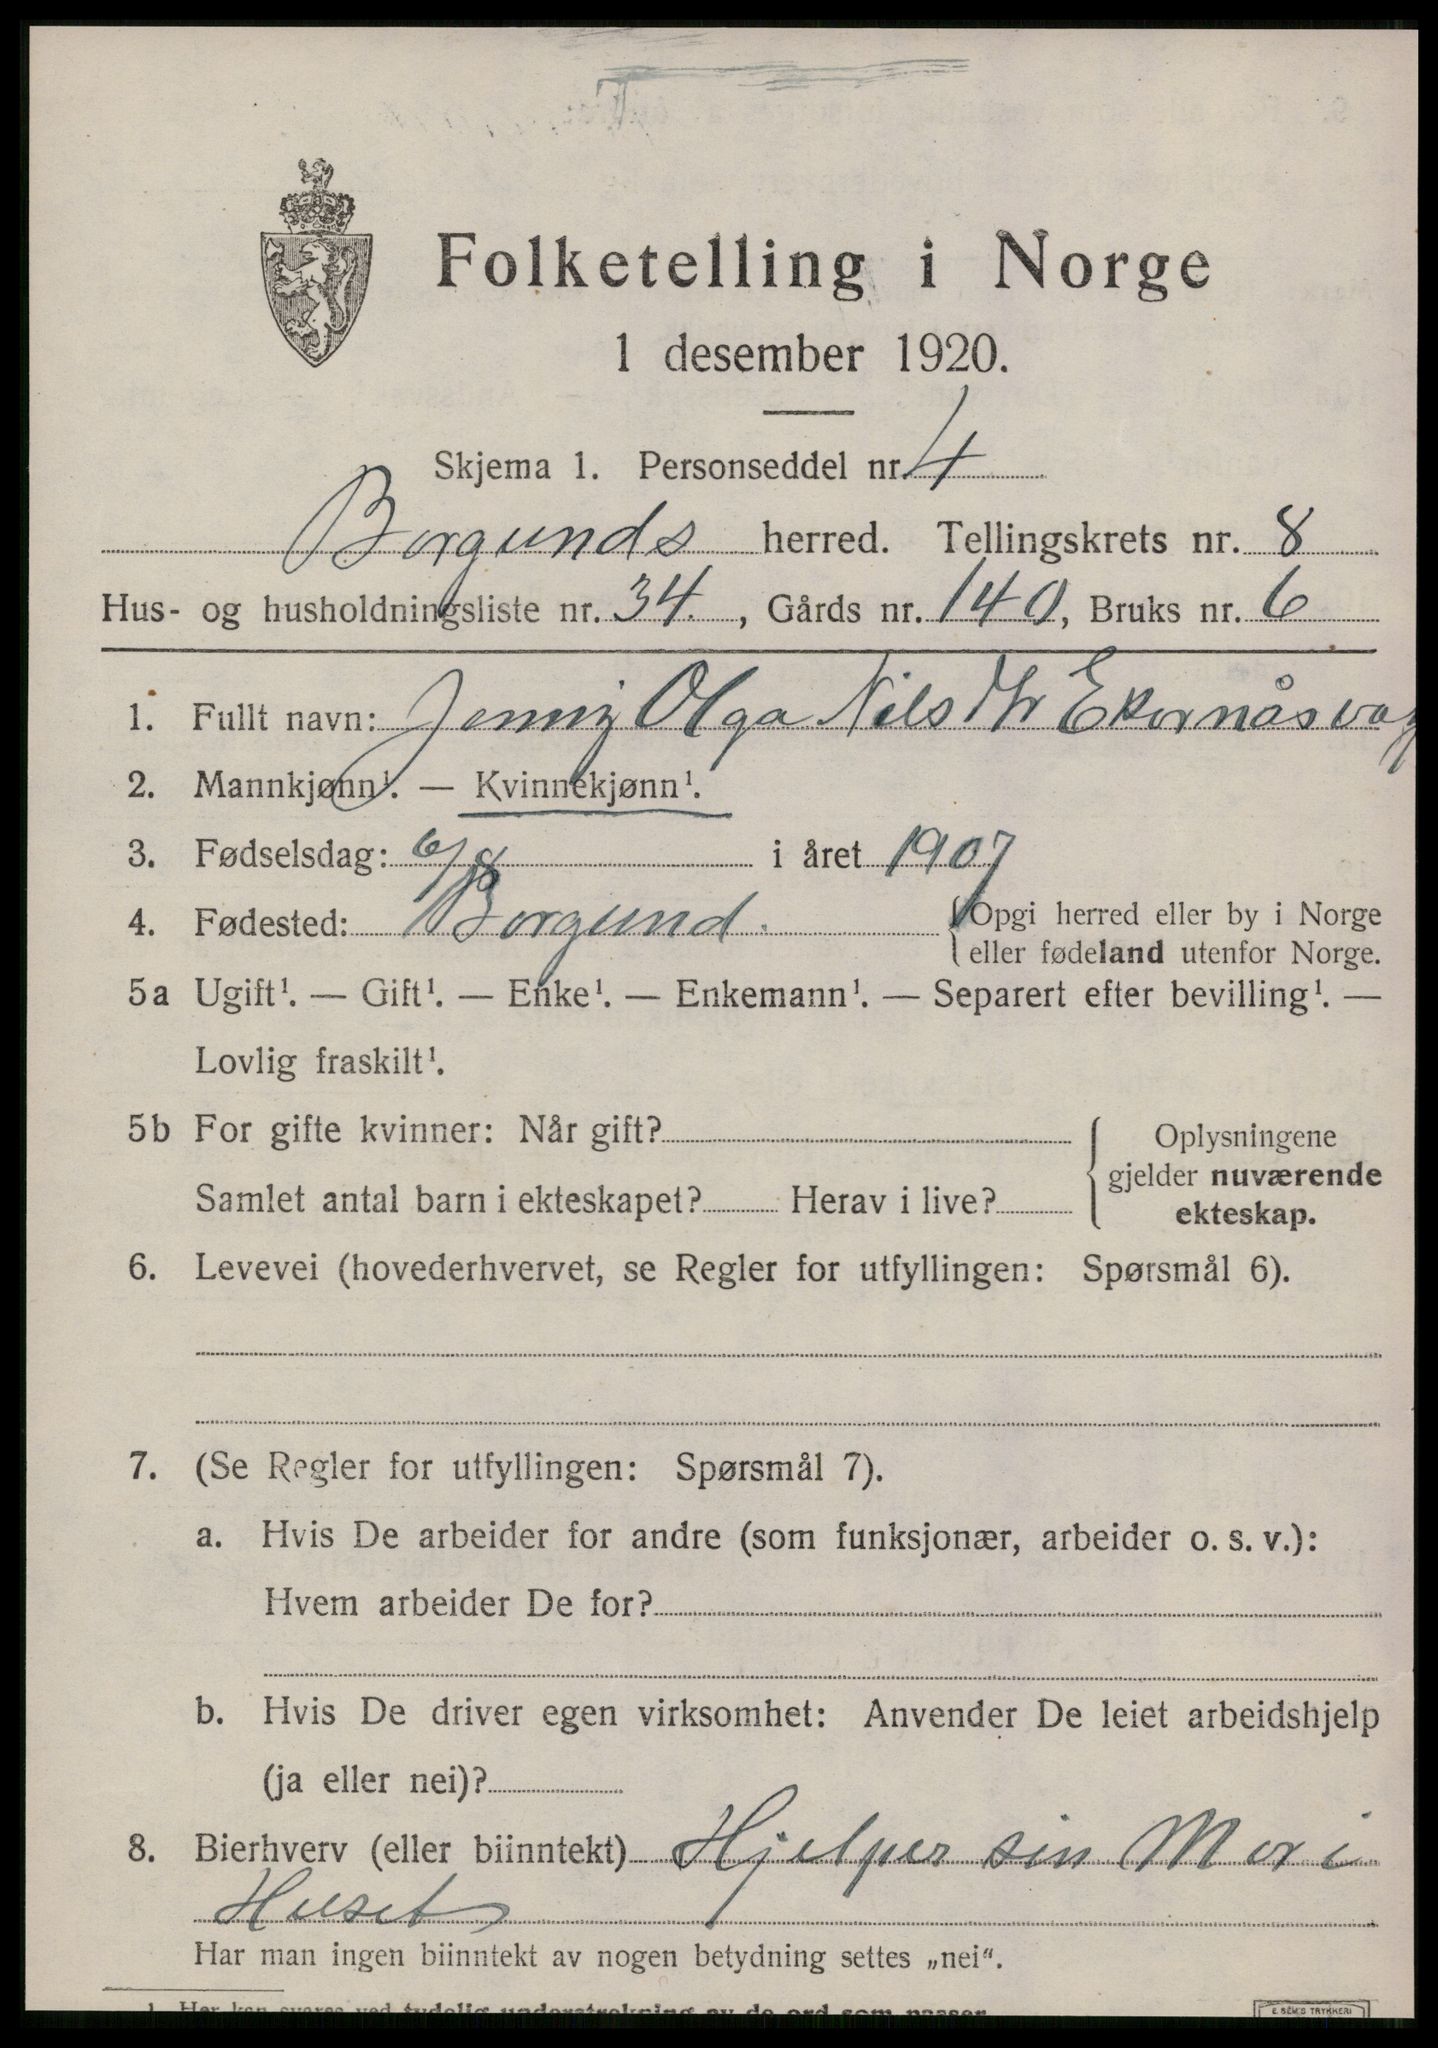 Folketelling i Norge
1 desember 1920.
Skjema 1. Personseddel nr. 4
Borgunds herred. Tellingskrets nr. 8
Hus- og husholdningsliste nr. 34., Gårds nr. 140, Bruks nr. 6
1. Fullt navn: Jenny Olga Nils Ekornåsvåg
2. Mannkjønn¹. — Kvinnekjønn¹.
3. Fødselsdag: 6/8 i året 1907
4. Fødested: Borgund. {Opgi herred eller by i Norge
eller fødeland utenfor Norge.
5a Ugift¹. — Gift¹. — Enke¹. — Enkemann¹. — Separert efter bevilling¹. —
Lovlig fraskilt¹.
5b For gifte kvinner: Når gift?
Samlet antal barn i ekteskapet? Herav i live?
Oplysningene
gjelder nuværende
ekteskap.
6. Levevei (hovederhvervet, se Regler for utfyllingen: Spørsmål 6).
7. (Se Regler for utfyllingen: Spørsmål 7).
a. Hvis De arbeider for andre (som funksjonær, arbeider o. s. v.):
Hvem arbeider De for?
b. Hvis De driver egen virksomhet: Anvender De leiet arbeidshjelp
(ja eller nei)?
8. Bierhverv (eller biinntekt) Hjelper sin Mor i
Huset
Har man ingen biinntekt av nogen betydning settes „nei“.
1. Her kan svares ved tydelig understrekning av de ord som passer.
E. SEM'S TRYKKERI